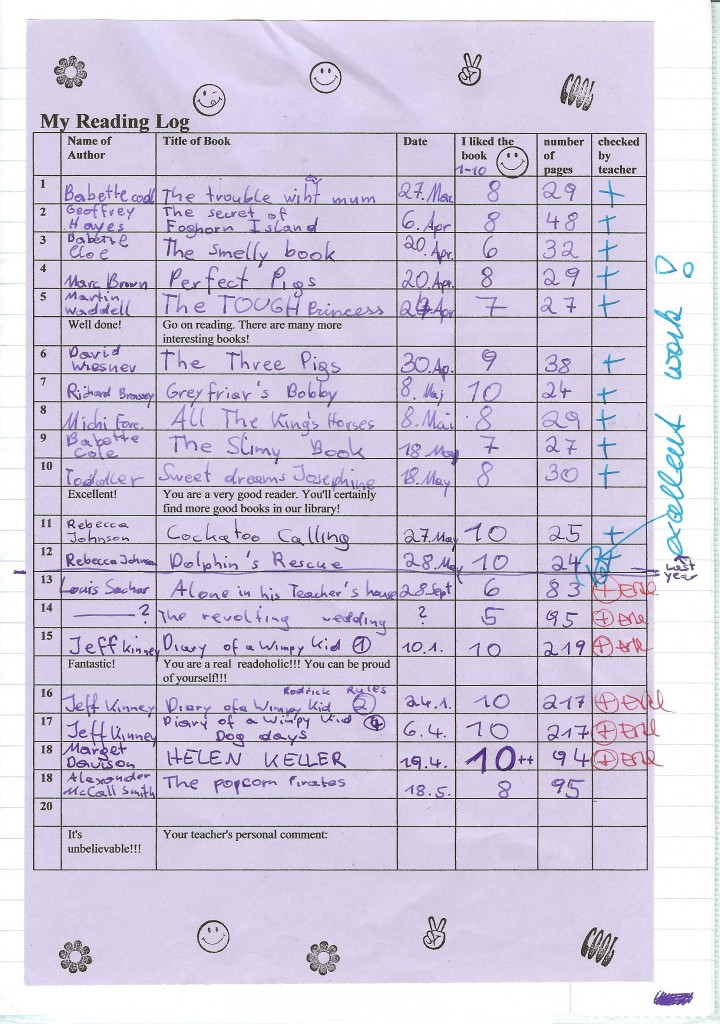 COOL
My Reading Log
Name of Author Title of Book Date I liked the book 1-10 number of pages checked by teacher
1 Babette cool The trouble wiht mum 27. Mar. 8 29 +
2 Geoffrey Hayes The secret of Foghorn Island 6. Apr 8 48 +
3 Babette Cloe The smelly book 20. Apr. 6 32 +
4 Marc Brown Perfect Pigs 20. Apr. 8 29 +
5 Martin Waddell The TOUGH Princess Apr 7 27 +
Well done! Go on reading. There are many more interesting books!
6 David Wiesner The Three Pigs 30. Ap. 9 38 +
7 Richard Greyfriar's Bobby 8. Maj 10 24 +
8 Michi All The King's Horses 8. Mai 8 29 +
9 Babette Cole The Slimy Book 18 May 7 27 +
10 Toddler Sweet dreams Josephine 18. May 8 30 +
Excellent! You are a very good reader. You'll certainly find more good books in our library!
11 Rebecca Johnson Cockatoo Calling 27. May 10 25 +
12 Rebecca Johnson Dolphin's Rescue 28. May 10 24 +
last year
13 Louis Sachar Alone in his Teacher's house 28. Sept 6 83 +
14 ? The revolting wedding ? 5 95 +
15 Jeff Kinney Diary of a Wimpy Kid 1 10.1. 10 219 +
Fantastic! You are a real readoholic!!! You can be proud of yourself!!!
16 Jeff Kinney Diary of a Wimpy Kid 2 Rodrick Rules 24.1. 10 217 +
17 Jeff Kinney Diary of a Wimpy Kid 4 Dog days 6.4. 10 217 +
18 Marget Davison HELEN KELLER 19.4. 10++ 94 +
18 Alexander McCall Smith The popcorn Pirates 18.5. 8 95
20
It's unbelievable!!! Your teacher's personal comment:
excellent work!
COOL